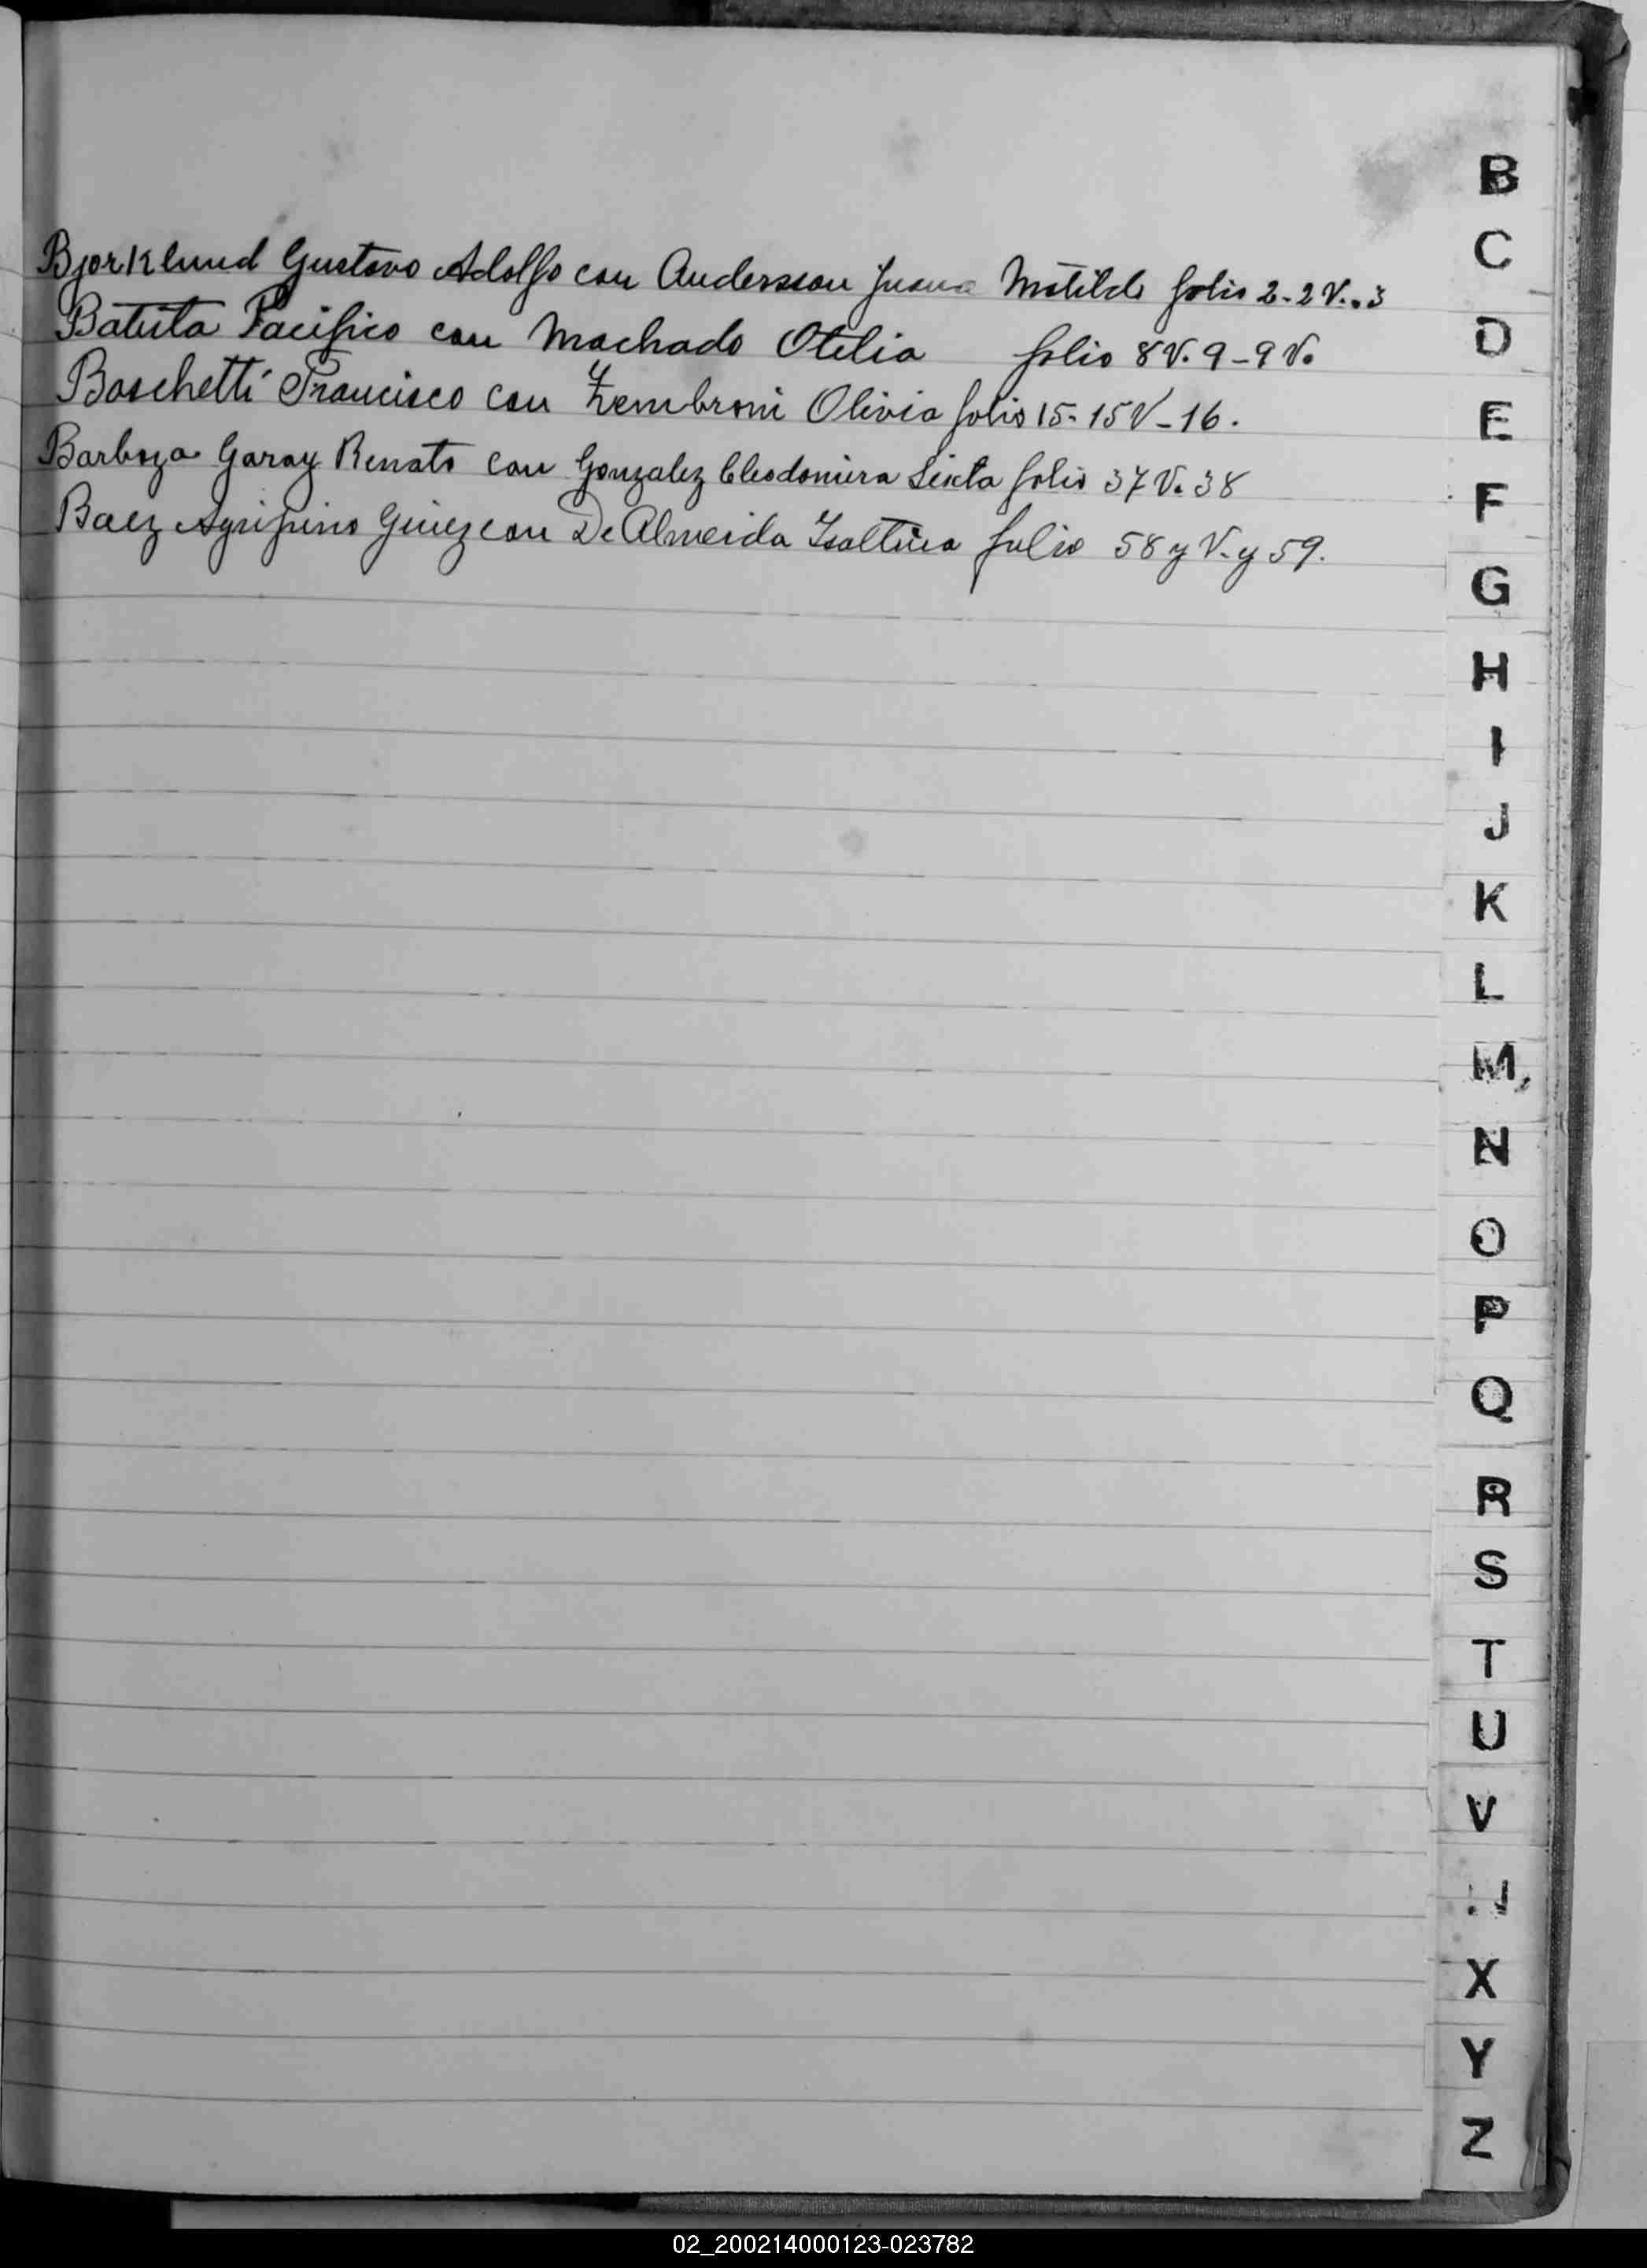 Bjorklund Gustavo Adolfo con Andersson Juana Matilde folio 2-2V..3
Batista Pacifico con Machado Otelia folio 8V. 9-9V.
Boschetti Francisco con Zembroni Olivia folio 15-15V-16.
Barboza Garay Renato con Gonzalez Cleodomira Sixta folio 37V. 38
Baez Agripino con De Almeida Isaltina folio 58 y V. y 59.
B
C
D
E
F
G
H
I
J
K
L
M
N
O
P
Q
R
S
T
U
V
X
Y
Z
02_200214000123-023782